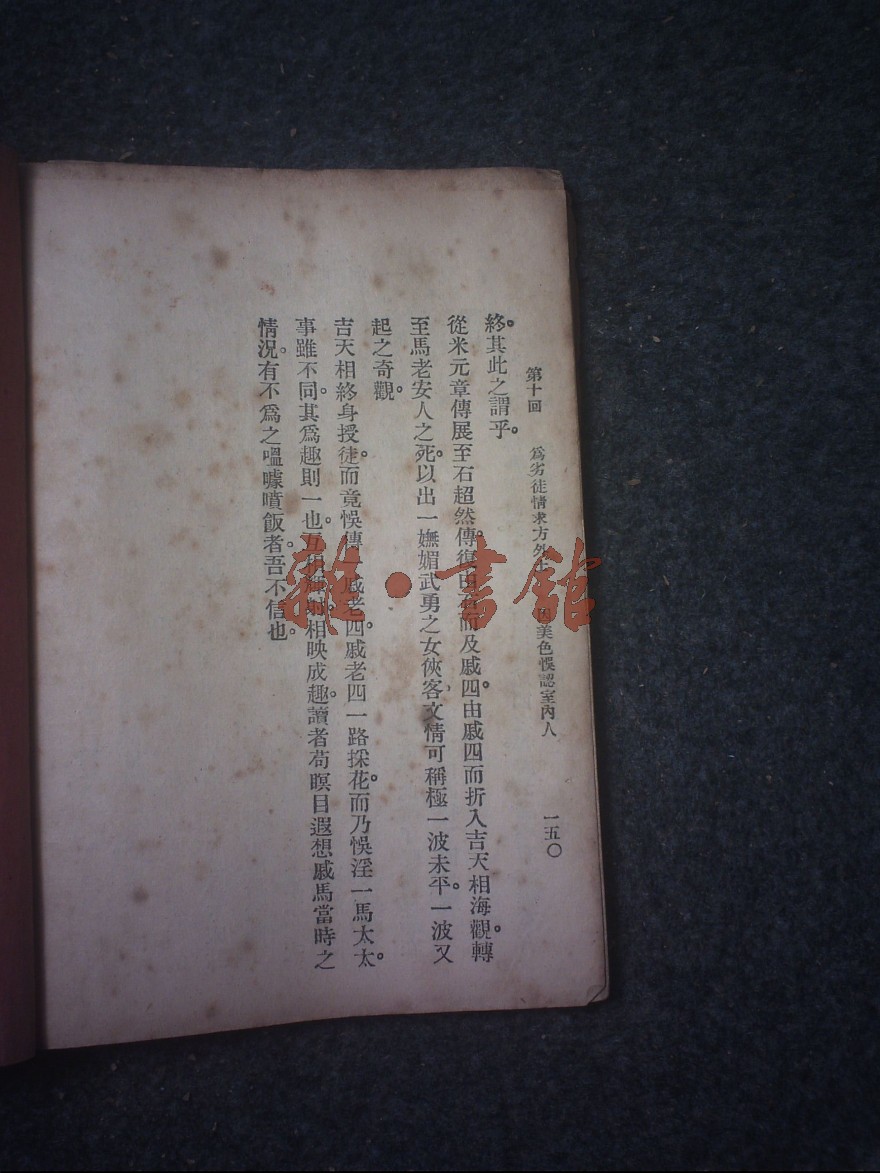 第十回 爲劣徒情求方外 美色悞認室內人 一五〇
終。其此之謂乎。
從米元章傳展至石超然傳。復由石而及戚四。由戚四而折入吉天相海觀。轉
至馬老安人之死。以出一嫵媚武勇之女俠客。文情可稱極一波未平。一波又
起之奇觀。
吉天相終身授徒。而竟悞傳一戚老四。戚老四一路採花。而乃悞淫一馬太太。
事雖不同。其爲趣則一也。互相輝射。相映成趣。讀者苟瞑目遐想戚馬當時之
情況。有不爲之嗢噱噴飯者。吾不信也。
雜·書館